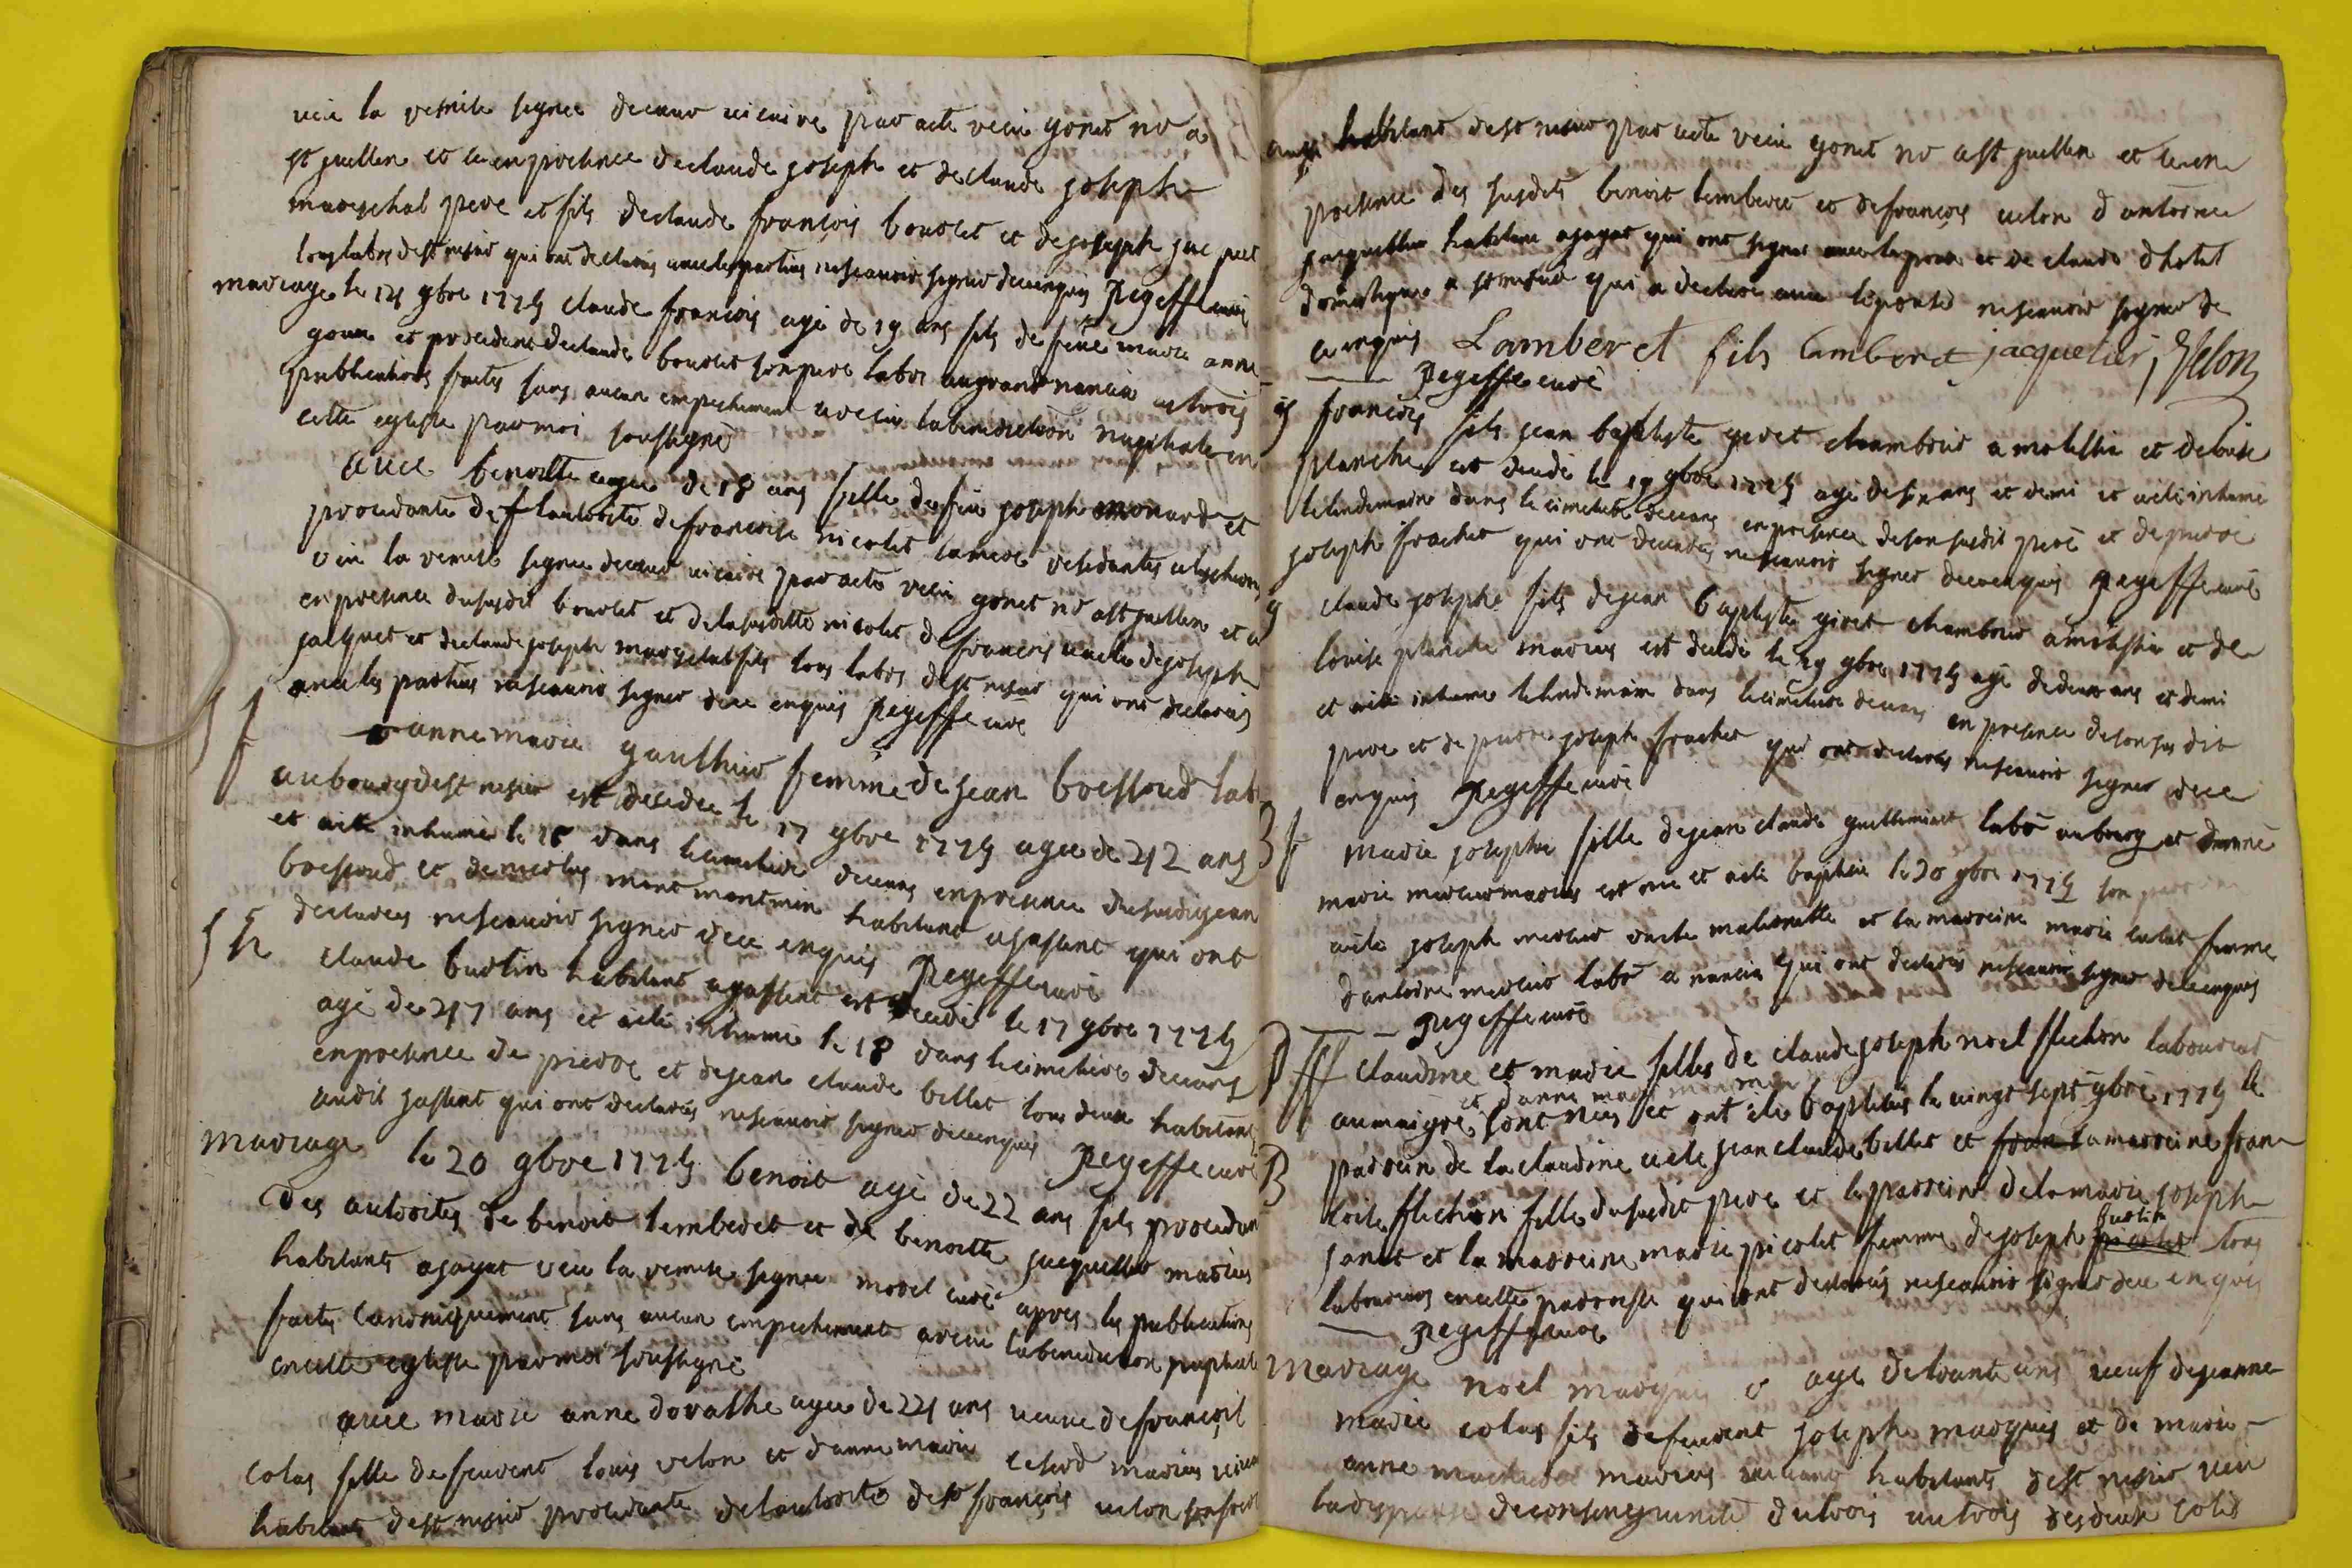 veu la remise signee decœur vicaire par acte veu gonet no a
st jullien et ce en presence declaude joseph et declaude joseph
mareschal pere et fils declaude françois bourlet et dejoseph jac
tous labrs dest nisier qui ont declarés avec les parties nescavoir signer dece enquis pegeffe curé
mariage le 14 9bre 1774 claude françois agé de 19 ans fils de feüe marie anne
gonn et procedent declaude bourlet son pere labr augrand nancin trois
publications faites sans aucun empechement a recu la benediction nuptiale en
cette eglise par moi soussigné
avec benoitte agee de 18 ans fille defeu joseph monard et
procedante de l'autorité defrancoise nicolet sa mere residantes
veu la remise signee decœur vicaire par acte veu gonet no a st jullien et ce
en presence du susdit bourlet et dela susditte nicolet defrancois dejoseph
jacquet et declaude joseph mareschal fils tous labrs dest nisier qui ont declarés
avec les parties nescavoir signer dece enquis pegeffe curé
S f anne marie gauthier femme de jean boessoud lab
aubourg dest nisier est decedee le 17 9bre 1774 agee de 42 ans
et a été inhumé le 18 dans le cimetiere deceans en presence du susdit jean
boessoud et de nicolas mont montmin habitant a jassent qui ont
declarés nescavoir signer dece enquis pegeffe curé
S h claude burtin habitant a jassent est decedé le 17 9bre 1774
agé de 47 ans et a été inhumé le 18 dans le cimetiere deceans
en presence de pierre et dejean claude billet tous deux habitants
audit jassent qui ont declarés nescavoir signer dece enquis pegeffe curé
mariage le 20 9bre 1774 benoit agé de 22 ans fils procedant
des autorités de benoit lemberet et de benoitte jacquellier mariés
habitants a jayat veu la remise signee morel curé apres les publications
faites canoniquement sans aucun empechement a recu la benediction nuptiale
en cette eglise par moi soussigné
avec marie anne dorathe agee de 24 ans veuve defrançois
colas fille defeuvent louis velon et d'anne marie mariés
habitants dest nisier procedante delautorité dest françois velon son frere
aussi habitant dest nisier par acte veu gonet no a st jullien et ce en
presence des susdits benoit lemberet et defrançois velon d antoine
jacquellier habitant a jayat qui ont signés avec le pere et de claude dhotel
domestique a qui a declaré avec lepouse nescavoir signer de
ce enquis Lamberet fils lamberet jacquelier, f velon
pegeffe curé
françois fils jean baptiste giret chambrier a molessia et delouise
planche est decedé le 19 9bre 1774 agé desix ans et demi et a été inhumé
le lendemain dans le cimetiere deceans en presence deson susdit pere et depierre
joseph frachet qui ont declarés nescavoir signer dece enquis pegeffe curé
claude joseph fils dejean baptiste giret chambrier a molessia et de
louise planche mariés est decedé le 29 9bre 1774 agé dedeux ans et demi
et a été inhumé le lendemain dans le cimetiere deceans en presence deson susdit
pere et de pierre joseph frachet qui ont declarés nescavoir signer dece
enquis pegeffe curé
B f marie josephe fille dejean claude guilleminet labr aubourg et danne
marie mercier mariés est nee et a été baptisee le 20 9bre 1774 son
a été joseph mercier oncle maternelle et la marreine marie femme
dantoine mercier labr a nancin qui ont declarés nescavoir signer dece enquis
pegeffe curé
B ff claudine et marie filles de claude joseph noel flichon laboureur
et d'anne marie
aumaigre sont nées et ont été baptisées le vingt sept 9bre 1774 le
B parrein de la claudine a été jean claude billet et fran la marreine fran
coise flichon fille du susdit pere et le parrein dela marie joseph
janet et la marreine marie picolet femme dejoseph picolet burtin tous
laboureurs en cette parroisse qui ont declarés nescavoir signer dece enquis
pegeffe curé
Mariage noel marquis agé detrante ans veuf dejeanne
marie colas fils defeuvent joseph marquis et de marie
anne mariés vivant habitants dest nisier veu
la dispense deconsanguinité dutrois autrois des deux cotés